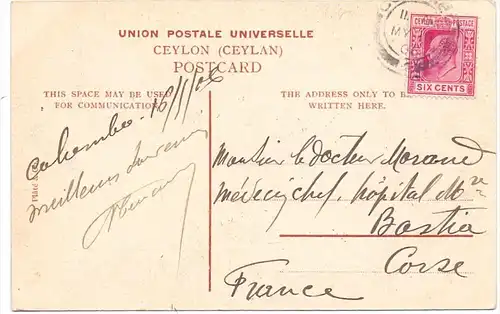 UNION POSTALE UNIVERSELLE
CEYLON (CEYLAN)
POSTCARD
THIS SPACE MAY BE USED
FOR COMMUNICATION.
THE ADDRESS ONLY TO BE
WRITTEN HERE.
CEYLON POSTAGE
SIX CENTS
Colombo. 16/5/06
meilleurs souvenirs
Monsieur le docteur Morand
médecin chef, hôpital Mre
Bastia
Corse
France
Plâté &